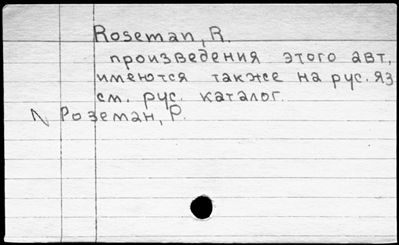 Roseman, R.
произведения этого авт.
имеются также на рус. яз
см. рус. каталог.
Роземан, Р.